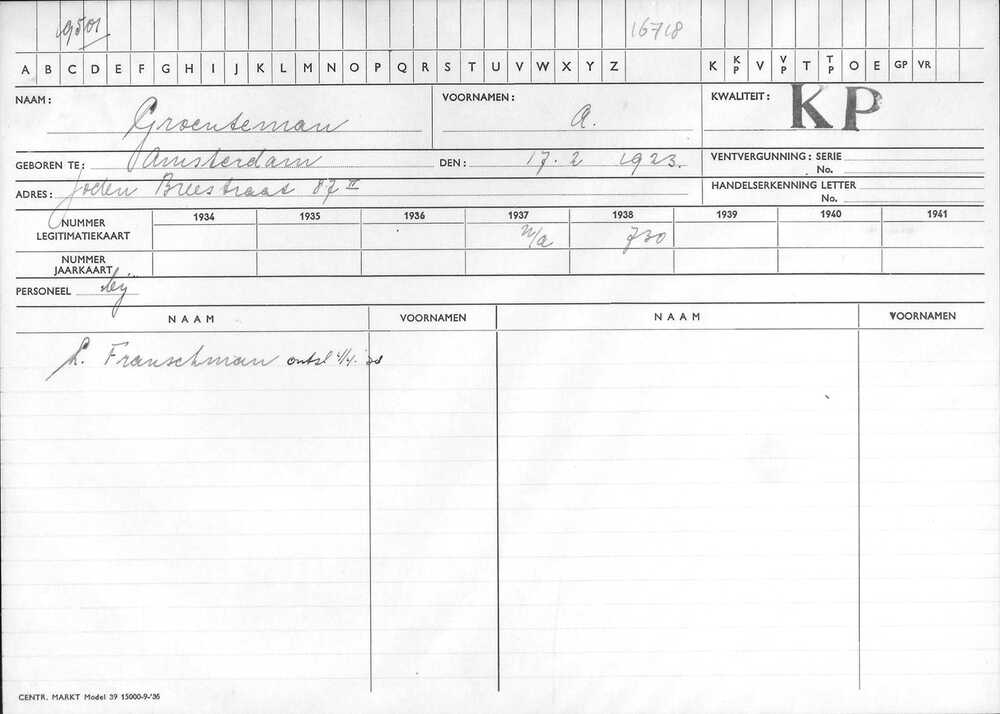 9501 16718
A B C D E F G H I J K L M N O P Q R S T U V W X Y Z K KP V VP T TP O E GP VR
NAAM: Groenteman VOORNAMEN: A. KWALITEIT: KP
GEBOREN TE: Amsterdam DEN: 17.2 1923. VENTVERGUNNING: SERIE
No.
ADRES: Joden Breestraat 87 III HANDELSERKENNING LETTER
No.
1934 1935 1936 1937 1938 1939 1940 1941
NUMMER LEGITIMATIEKAART n/a 730
NUMMER JAARKAART
PERSONEEL bij
NAAM VOORNAMEN NAAM VOORNAMEN
L. Franschman ontsl
CENTR. MARKT Model 39 15000-9-'36